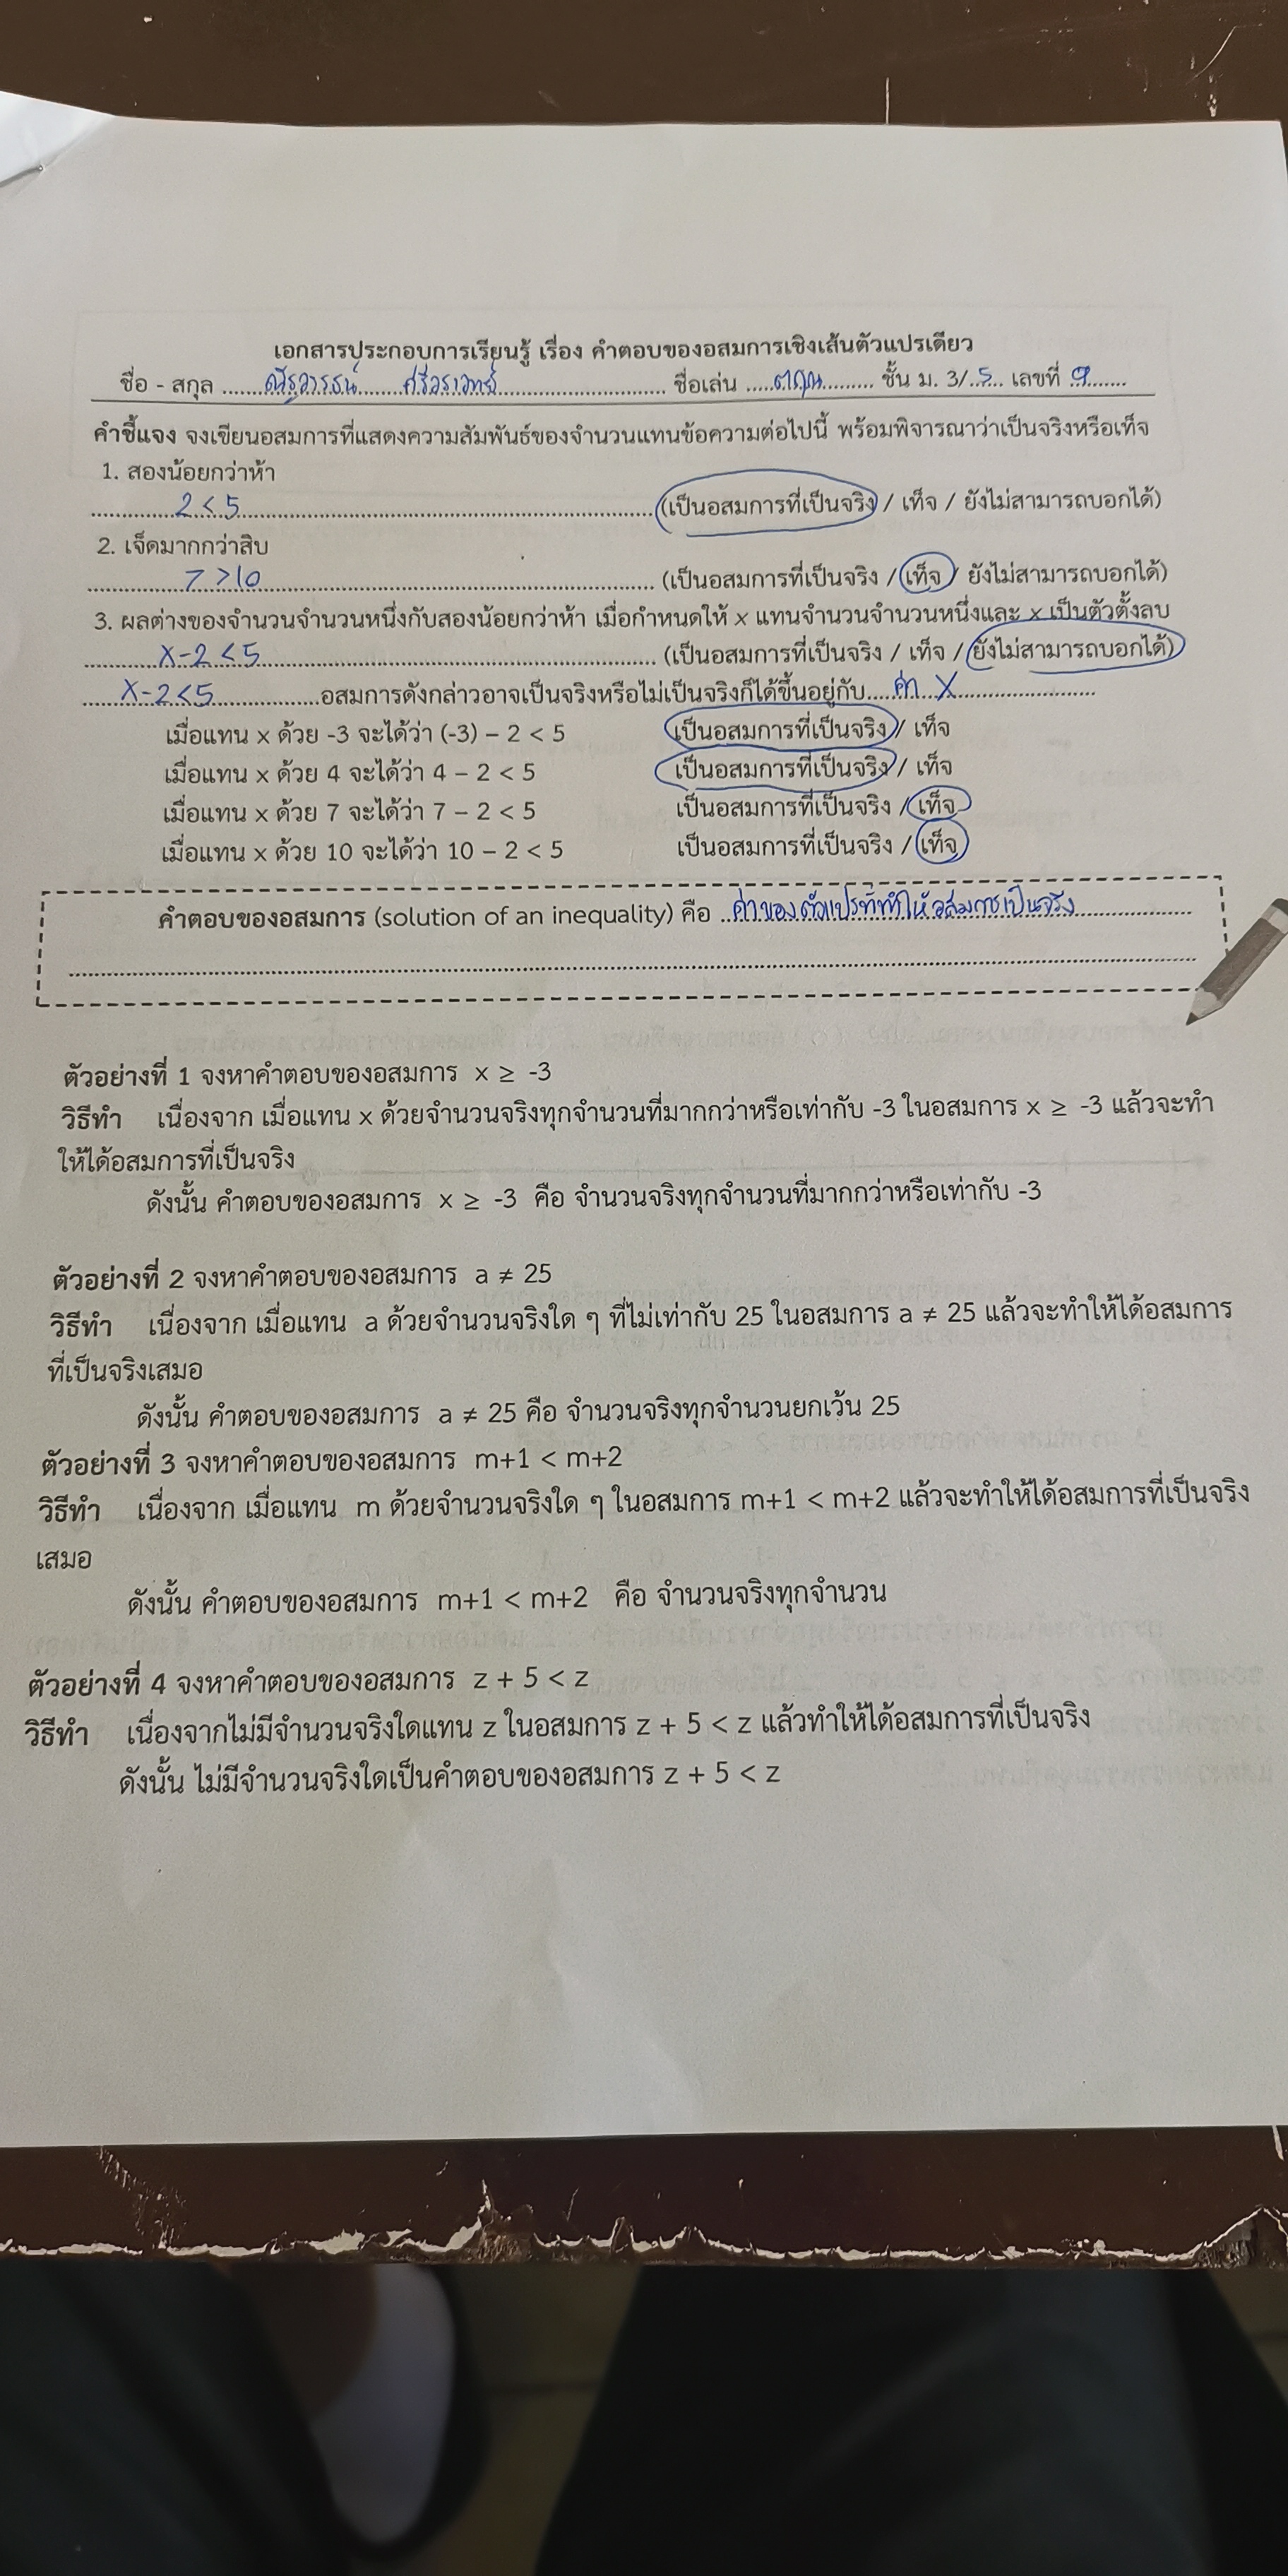 เอกสารประกอบการเรียนรู้ เรื่อง คำตอบของอสมการเชิงเส้นตัวแปรเดียว
ชื่อ - สกุล ........................ ชื่อเล่น ............ ชั้น ม. 3/..5... เลขที่ .9........
คำชี้แจง จงเขียนอสมการที่แสดงความสัมพันธ์ของจำนวนแทนข้อความต่อไปนี้ พร้อมพิจารณาว่าเป็นจริงหรือเท็จ
1. สองน้อยกว่าห้า
2 < 5 (เป็นอสมการที่เป็นจริง / เท็จ / ยังไม่สามารถบอกได้)
2. เจ็ดมากกว่าสิบ
7 > 10 (เป็นอสมการที่เป็นจริง / เท็จ / ยังไม่สามารถบอกได้)
3. ผลต่างของจำนวนจำนวนหนึ่งกับสองน้อยกว่าห้า เมื่อกำหนดให้ x แทนจำนวนจำนวนหนึ่งและ x เป็นตัวตั้งลบ
x-2 < 5 (เป็นอสมการที่เป็นจริง / เท็จ / ยังไม่สามารถบอกได้)
x-2<5 อสมการดังกล่าวอาจเป็นจริงหรือไม่เป็นจริงก็ได้ขึ้นอยู่กับ ค่า x
เมื่อแทน x ด้วย -3 จะได้ว่า (-3) – 2 < 5 เป็นอสมการที่เป็นจริง / เท็จ
เมื่อแทน x ด้วย 4 จะได้ว่า 4 – 2 < 5 เป็นอสมการที่เป็นจริง / เท็จ
เมื่อแทน x ด้วย 7 จะได้ว่า 7 – 2 < 5 เป็นอสมการที่เป็นจริง / เท็จ
เมื่อแทน x ด้วย 10 จะได้ว่า 10 – 2 < 5 เป็นอสมการที่เป็นจริง / เท็จ
คำตอบของอสมการ (solution of an inequality) คือ ค่าของตัวแปรที่ทำให้อสมการเป็นจริง
ตัวอย่างที่ 1 จงหาคำตอบของอสมการ x ≥ -3
วิธีทำ เนื่องจาก เมื่อแทน x ด้วยจำนวนจริงทุกจำนวนที่มากกว่าหรือเท่ากับ -3 ในอสมการ x ≥ -3 แล้วจะทำ
ให้ได้อสมการที่เป็นจริง
ดังนั้น คำตอบของอสมการ x ≥ -3 คือ จำนวนจริงทุกจำนวนที่มากกว่าหรือเท่ากับ -3
ตัวอย่างที่ 2 จงหาคำตอบของอสมการ a ≠ 25
วิธีทำ เนื่องจาก เมื่อแทน a ด้วยจำนวนจริงใด ๆ ที่ไม่เท่ากับ 25 ในอสมการ a ≠ 25 แล้วจะทำให้ได้อสมการ
ที่เป็นจริงเสมอ
ดังนั้น คำตอบของอสมการ a ≠ 25 คือ จำนวนจริงทุกจำนวนยกเว้น 25
ตัวอย่างที่ 3 จงหาคำตอบของอสมการ m+1 < m+2
วิธีทำ เนื่องจาก เมื่อแทน m ด้วยจำนวนจริงใด ๆ ในอสมการ m+1 < m+2 แล้วจะทำให้ได้อสมการที่เป็นจริง
เสมอ
ดังนั้น คำตอบของอสมการ m+1 < m+2 คือ จำนวนจริงทุกจำนวน
ตัวอย่างที่ 4 จงหาคำตอบของอสมการ z + 5 < z
วิธีทำ เนื่องจากไม่มีจำนวนจริงใดแทน z ในอสมการ z + 5 < z แล้วทำให้ได้อสมการที่เป็นจริง
ดังนั้น ไม่มีจำนวนจริงใดเป็นคำตอบของอสมการ z + 5 < z